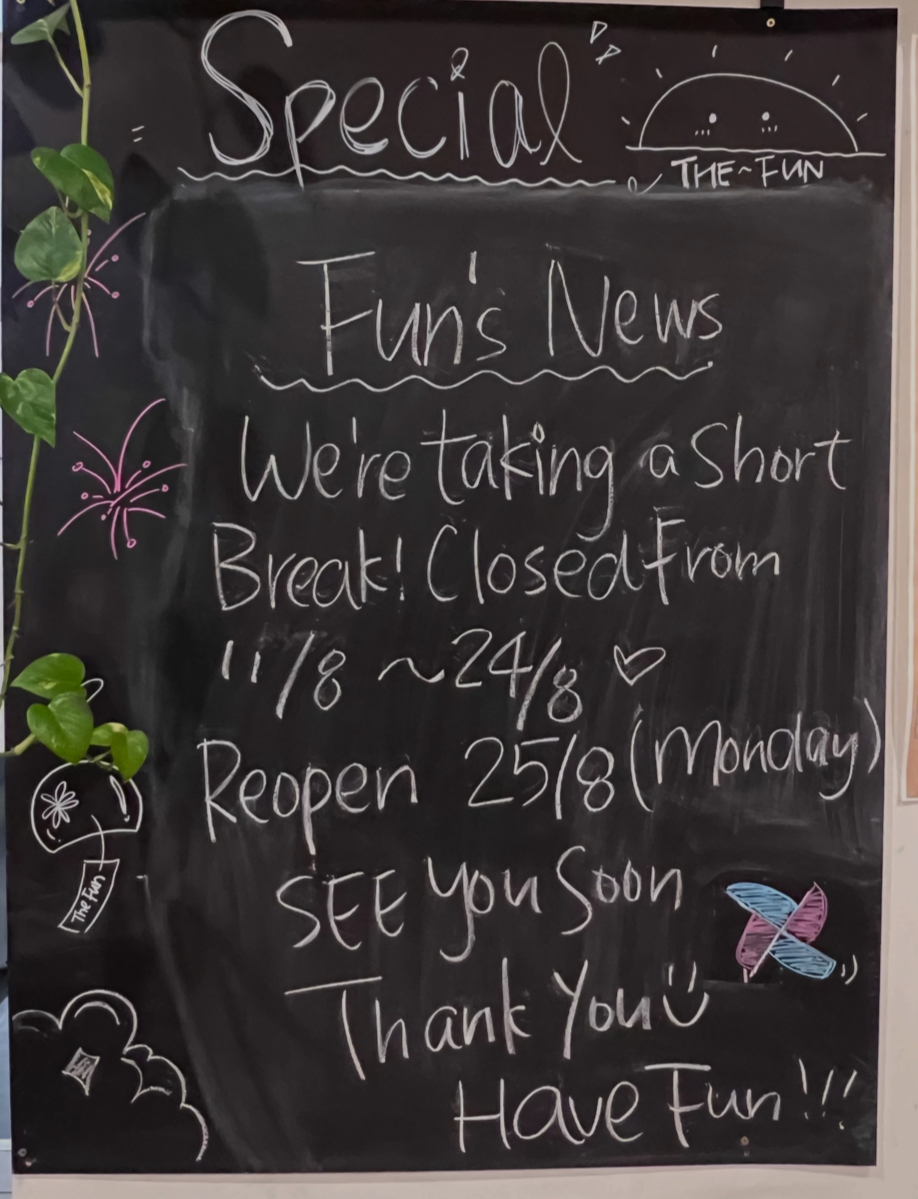 Special
THE~FUN
Fun's News
We're taking a Short
Break! Closed From
11/8 ~24/8 ♡
Reopen 25/8 (Monday)
The Fun
SEE you Soon
Thank You
Have Fun !!!